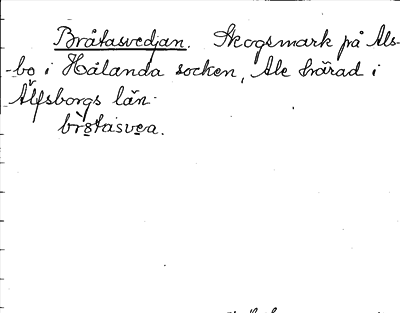 Bråtasvedjan. Skogsmark på Als-
-bo i Hålanda socken, Ale härad i
Älfsborgs län.